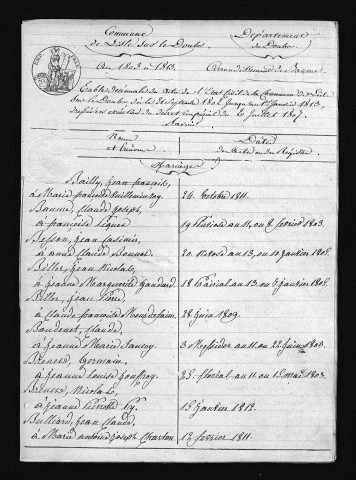 Commune
de Lisle sur le Doubs
Département
du Doubs
An 1802 à 1813.
Arrondissement de Baume
Table décennale des Actes de l'Etat Civil de la Commune de Lisle
sur le Doubs, dès le 21 Septembre 1802 jusqu'au 1er Janvier 1813,
dressée en exécution du Décret impérial du 20 Juillet 1807.
Savoir
Noms
et Prénoms
Dates
des Actes ou des Registres
Mariages
Bailly, Jean françois,
à Marie françoise Vuilleminzay 24 Octobre 1811.
Baume, Claude Joseph,
à françoise 19 Pluviose an 11, ou 8 février 1803.
Besson, Jean Casimir,
à anne Claude Bonnet 20 Nivose an 13, ou 10 janvier 1805.
Biller, Jean Nicolas,
à Jeanne Marguerite 18
Biller, Jean Pierre,
à Claude françoise 28 Juin 1809.
Baudenet, Claude,
à Jeanne Marie 3 Messidor an 11 ou 22 juin 1803.
Brenets, Germain,
à Jeanne Louise 25 floréal an 11 ou 15 mai 1803
Brenets, Nicolas,
à Jeanne Pierrette 15 janvier 1812.
Bulliard, Jean Claude,
à Marie antoine Joseph Charton 12 février 1811.